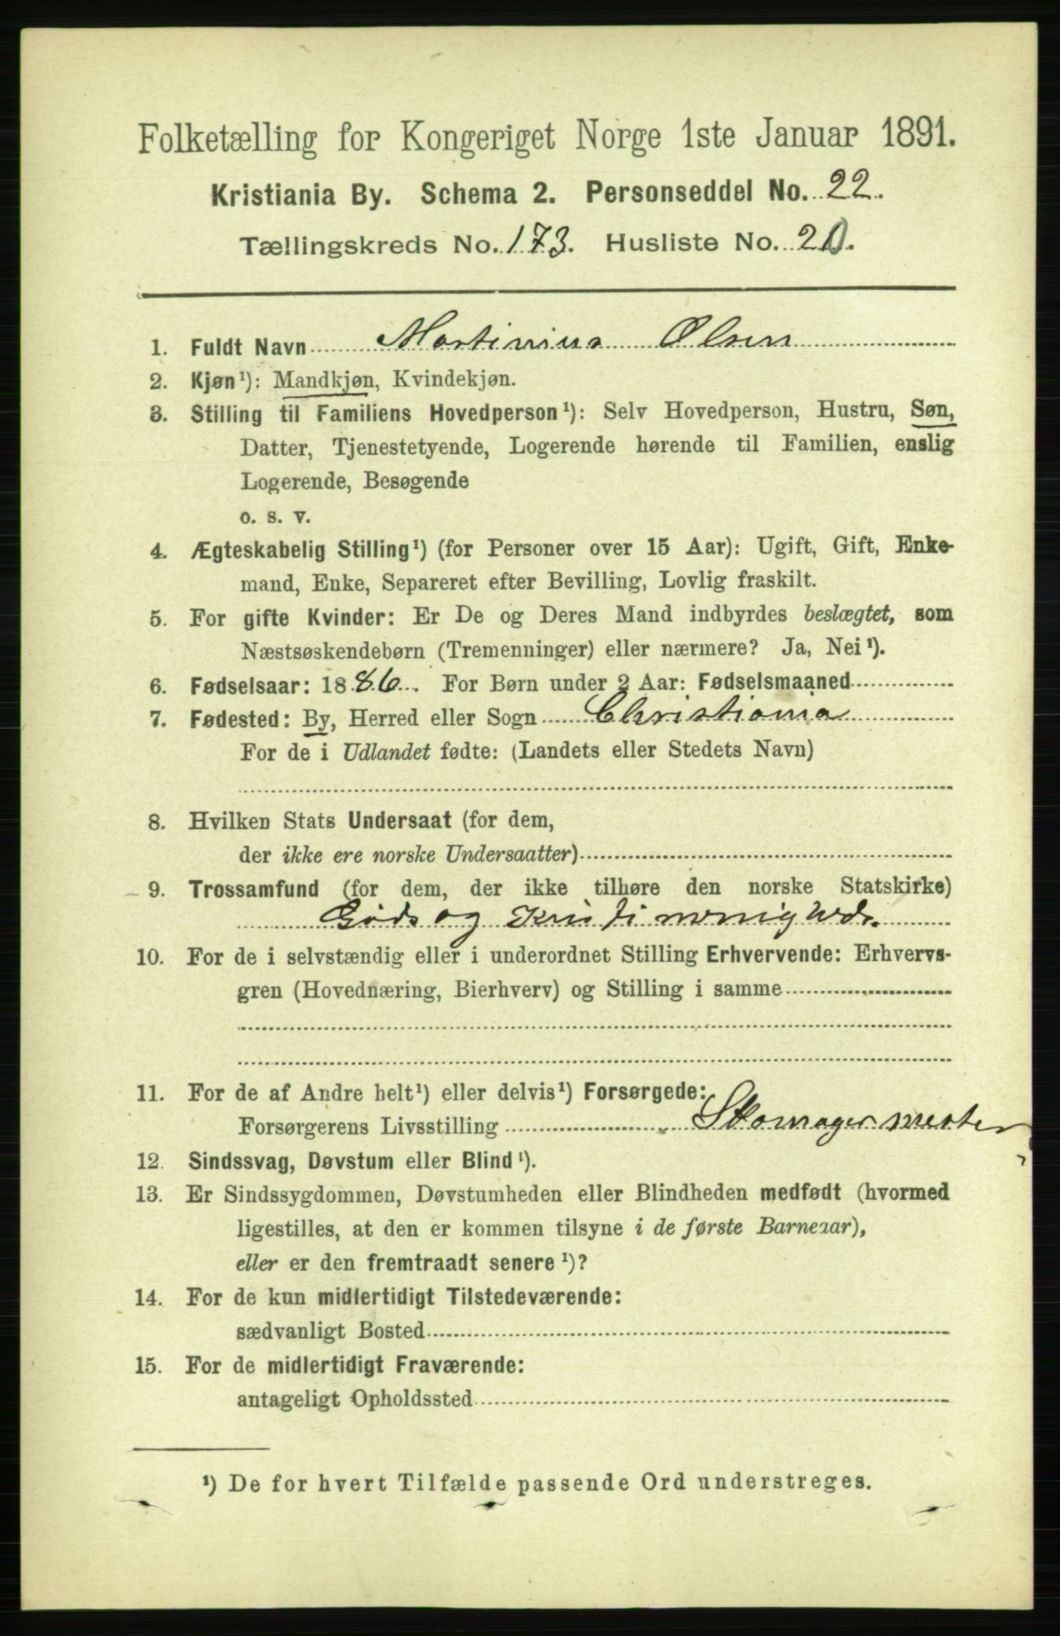 Folketælling for Kongeriget Norge 1ste Januar 1891.
Kristiania By. Schema 2. Personseddel No. 22.
Tællingskreds No. 173. Husliste No. 20.
1. Fuldt Navn Martinius Olsen
2. Kjøn¹): Mandkjøn, Kvindekjøn.
3. Stilling til Familiens Hovedperson¹): Selv Hovedperson, Hustru, Søn,
Datter, Tjenestetyende, Logerende hørende til Familien, enslig
Logerende, Besøgende
o. s. v.
4. Ægteskabelig Stilling¹) (for Personer over 15 Aar): Ugift, Gift, Enke-
mand, Enke, Separeret efter Bevilling, Lovlig fraskilt.
5. For gifte Kvinder: Er De og Deres Mand indbyrdes beslægtet, som
Næstsøskendebørn (Tremenninger) eller nærmere? Ja, Nei¹).
6. Fødselsaar: 1886. For Børn under 2 Aar: Fødselsmaaned
7. Fødested: By, Herred eller Sogn Christiania
For de i Udlandet fødte: (Landets eller Stedets Navn)
8. Hvilken Stats Undersaat (for dem,
der ikke ere norske Undersaatter)
9. Trossamfund (for dem, der ikke tilhøre den norske Statskirke)
Guds og Kristi menighed.
10. For de i selvstændig eller i underordnet Stilling Erhvervende: Erhvervs-
gren (Hovednæring, Bierhverv) og Stilling i samme
11. For de af Andre helt¹) eller delvis¹) Forsørgede:
Forsørgerens Livsstilling Skomagermester
12. Sindssvag, Døvstum eller Blind¹).
13. Er Sindssygdommen, Døvstumheden eller Blindheden medfødt (hvormed
ligestilles, at den er kommen tilsyne i de første Barneaar),
eller er den fremtraadt senere¹)?
14. For de kun midlertidigt Tilstedeværende:
sædvanligt Bosted
15. For de midlertidigt Fraværende:
antageligt Opholdssted
¹) De for hvert Tilfælde passende Ord understreges.